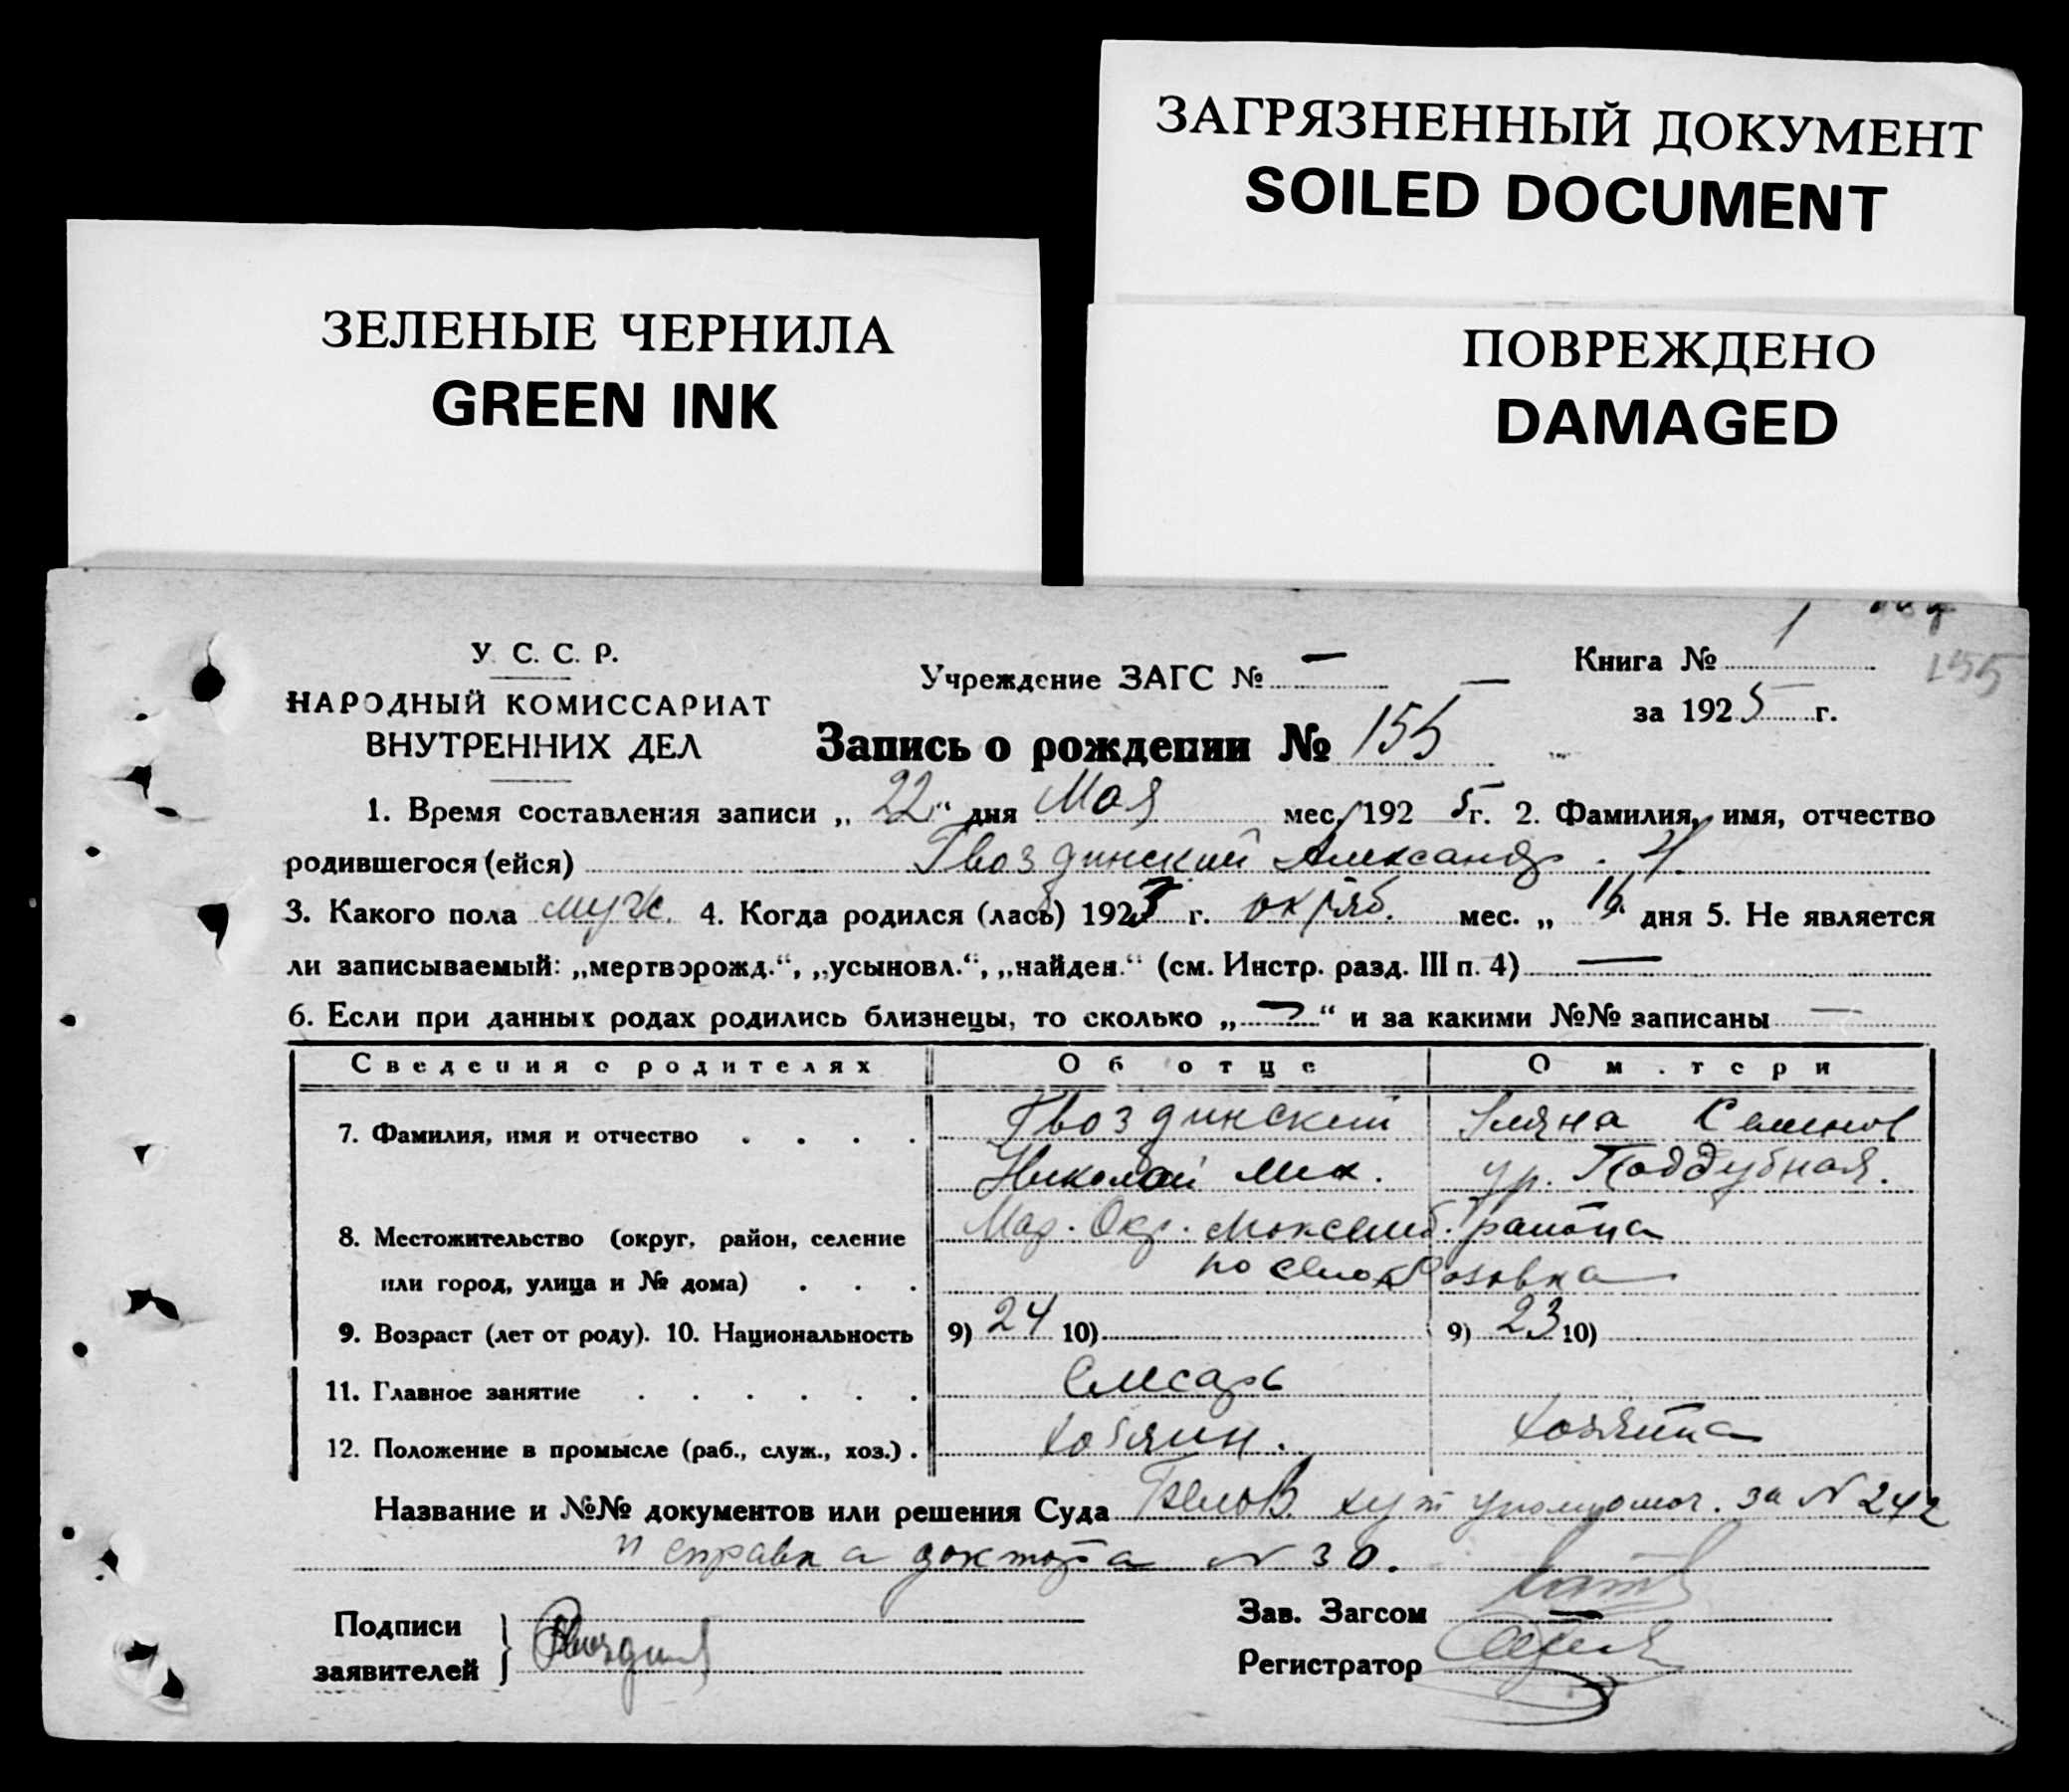 ЗАГРЯЗНЕННЫЙ ДОКУМЕНТ
SOILED DOCUMENT
ЗЕЛЕНЫЕ ЧЕРНИЛА
GREEN INK
ПОВРЕЖДЕНО
DAMAGED
У. С. С. Р.
НАРОДНЫЙ КОМИССАРИАТ
ВНУТРЕННИХ ДЕЛ
Учреждение ЗАГС № —
Книга № 1
155
за 1925 г.
Запись о рождении № 155
1. Время составления записи „22“ дня Мая мес. 1925 г. 2. Фамилия, имя, отчество
родившегося (ейся) Гвоздинский Александр. Н.
3. Какого пола муж. 4. Когда родился (лась) 1923 г. октяб. мес. „ 16 дня 5. Не является
ли записываемый: „мертворожд.“, „усыновл.“, „найден.“ (см. Инстр. разд. III п. 4) —
6. Если при данных родах родились близнецы, то сколько „—“ и за какими №№ записаны —
Сведения о родителях Об отце О м.тери
7. Фамилия, имя и отчество . . . . Гвоздинский Уляна Семенов
Николай Мих. ур. Поддубная.
8. Местожительство (округ, район, селение Мар. Окр. района
или город, улица и № дома) . . . поселок Розовка
9. Возраст (лет от роду). 10. Национальность 9) 24 10) 9) 23 10)
11. Главное занятие . . . . . . Слесарь
12. Положение в промысле (раб., служ., хоз.) . хозяин. хозяйка
Название и №№ документов или решения Суда хут уполномоч. за N 242
и справка доктора N 30.
Подписи
заявителей
Зав. Загсом
Регистратор